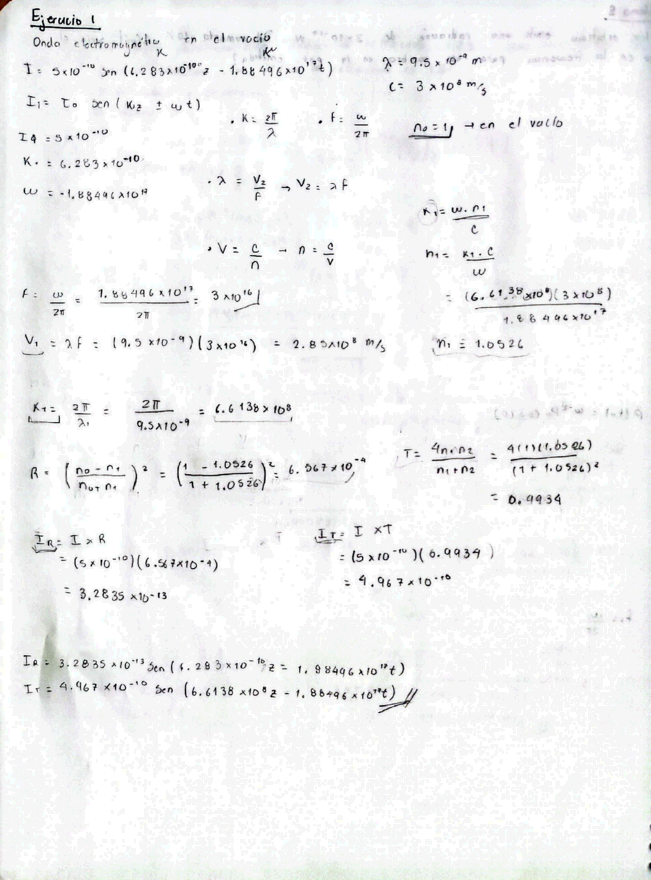 Ejercicio 1
Onda electromagnética en el vacío
K K
I = 5x10^-10 sen (6.283x10^-10 z - 1.88496x10^17 t) λ = 9.5 x 10^-9 m
C = 3 x 10^8 m/s
I1 = I0 sen ( K1z ± ω t)
• K = 2π/λ • f = ω/2π n0 = 1 → en el vacío
I1 = 5x10^-10
K = 6.283x10^-10
ω = -1.88496x10^17
• λ = V2/F → V2 = λ f
K1 = ω.n1/C
• V = C/n → n = C/V
n1 = K1.C/ω
f = ω/2π = 1.88496x10^17/2π = 3x10^16
= (6.6138x10^8)(3x10^8)/1.88496x10^17
V1 = λ f = (9.5 x10^-9)(3x10^16) = 2.85x10^8 m/s
n1 = 1.0526
K1 = 2π/λ1 = 2π/9.5x10^-9 = 6.6138x10^8
R = (n0 - n1/n0 + n1)^2 = (1 - 1.0526/1 + 1.0526)^2 = 6.567x10^-4
T = 4n1n2/n1+n2 = 4(1)(1.0526)/(1 + 1.0526)^2
= 0.9934
IR = I x R
= (5x10^-10)(6.567x10^-4)
= 3.2835x10^-13
IT = I x T
= (5x10^-10)(0.9934)
= 4.967x10^-10
IR = 3.2835x10^-13 sen (6.283x10^-10 z = 1.88496x10^17 t)
IT = 4.967x10^-10 sen (6.6138x10^8 z - 1.88496x10^17 t)